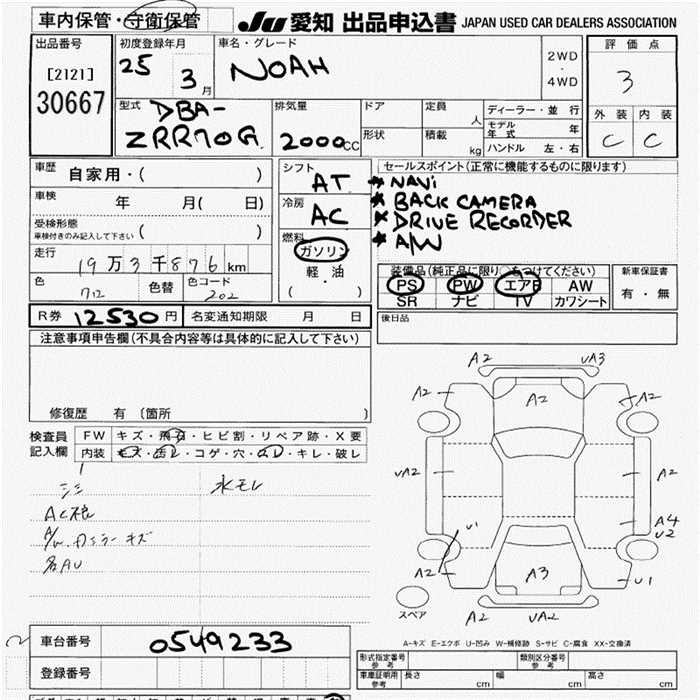 車内保管・守衛保管 JU 愛知 出品申込書 JAPAN USED CAR DEALERS ASSOCIATION
出品番号
[2121]
30667
初度登録年月
25 3月
車名・グレード
NOAH
2WD
・
4WD
評価点
3
外装 内装
C C
型式
DBA-
ZRR70G
排気量
2000cc
ドア
形状
定員 人
積載 kg
ディーラー・並行
モデル年式 年
ハンドル 左・右
車歴 自家用・( )
車検 年 月( 日)
受検形態
車検付きのみ記入して下さい ( )
走行 19万3千876km
色 712 色替 色コード 202
シフト AT
冷房 AC
燃料
ガソリン
軽・油
( )
セールスポイント(正常に機能するものに限ります)
* NAVi
* BACK CAMERA
* DRIVE RECORDER
* A/W
装備品(純正品に限り○をつけてください)
PS PW エアB AW
SR ナビ TV カワシート
新車保証書
有・無
R券 12530円 名変通知期限 月 日
後日品
注意事項申告欄(不具合内容等は具体的に記入して下さい)
修復歴 有 (箇所 )
検査員
記入欄
FW キズ・飛石・ヒビ割・リペア跡・X要
内装 キズ・汚レ・コゲ・穴・凹・キレ・破レ
シミ 水モレ
A/W. キズ
A2 UA3
A2 A2 A2
UA2 A2
A4
U2
U1
A2 A3 U1
A2 UA2
スペア
A-キズ E-エクボ U-凹み W-補修跡 S-サビ C-腐食 XX-交換済
車台番号 0549233
登録番号
形式指定番号
参考
類別区分番号
参考
車庫証明用
参考
長さ cm 幅 cm 高さ cm